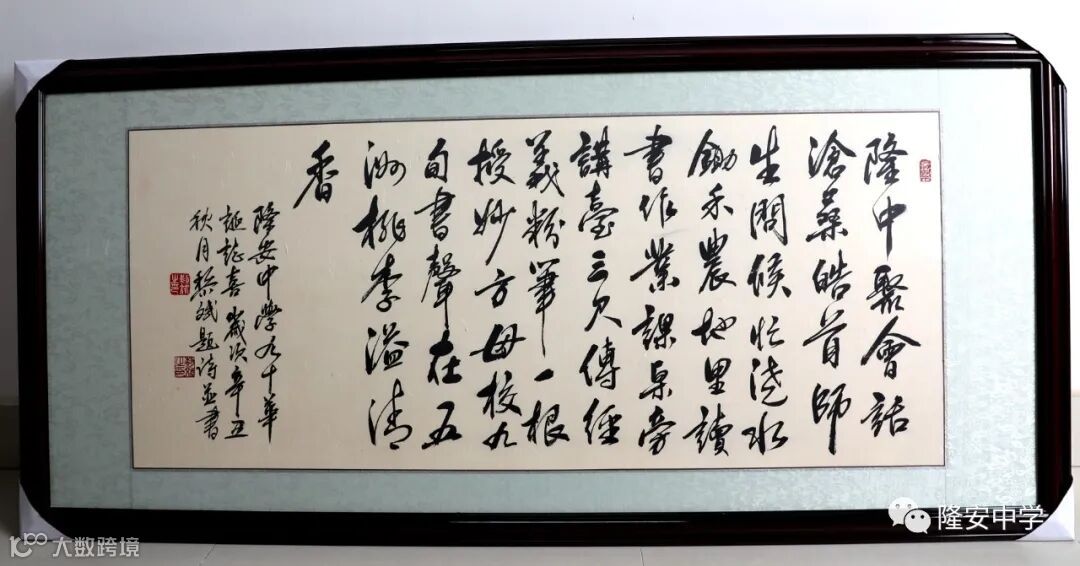 隆中聚會話
滄桑皓首師
生問候忙澆水
鋤禾農地里讀
書作業課桌旁
講臺三尺傳經
義粉筆一根
授妙方母校九
旬書聲在五
洲桃李溢清
香
隆安中學九十華
誕誌喜歲次辛丑
秋月黎斌題詩並書
隆安中学
10100 大数跨境